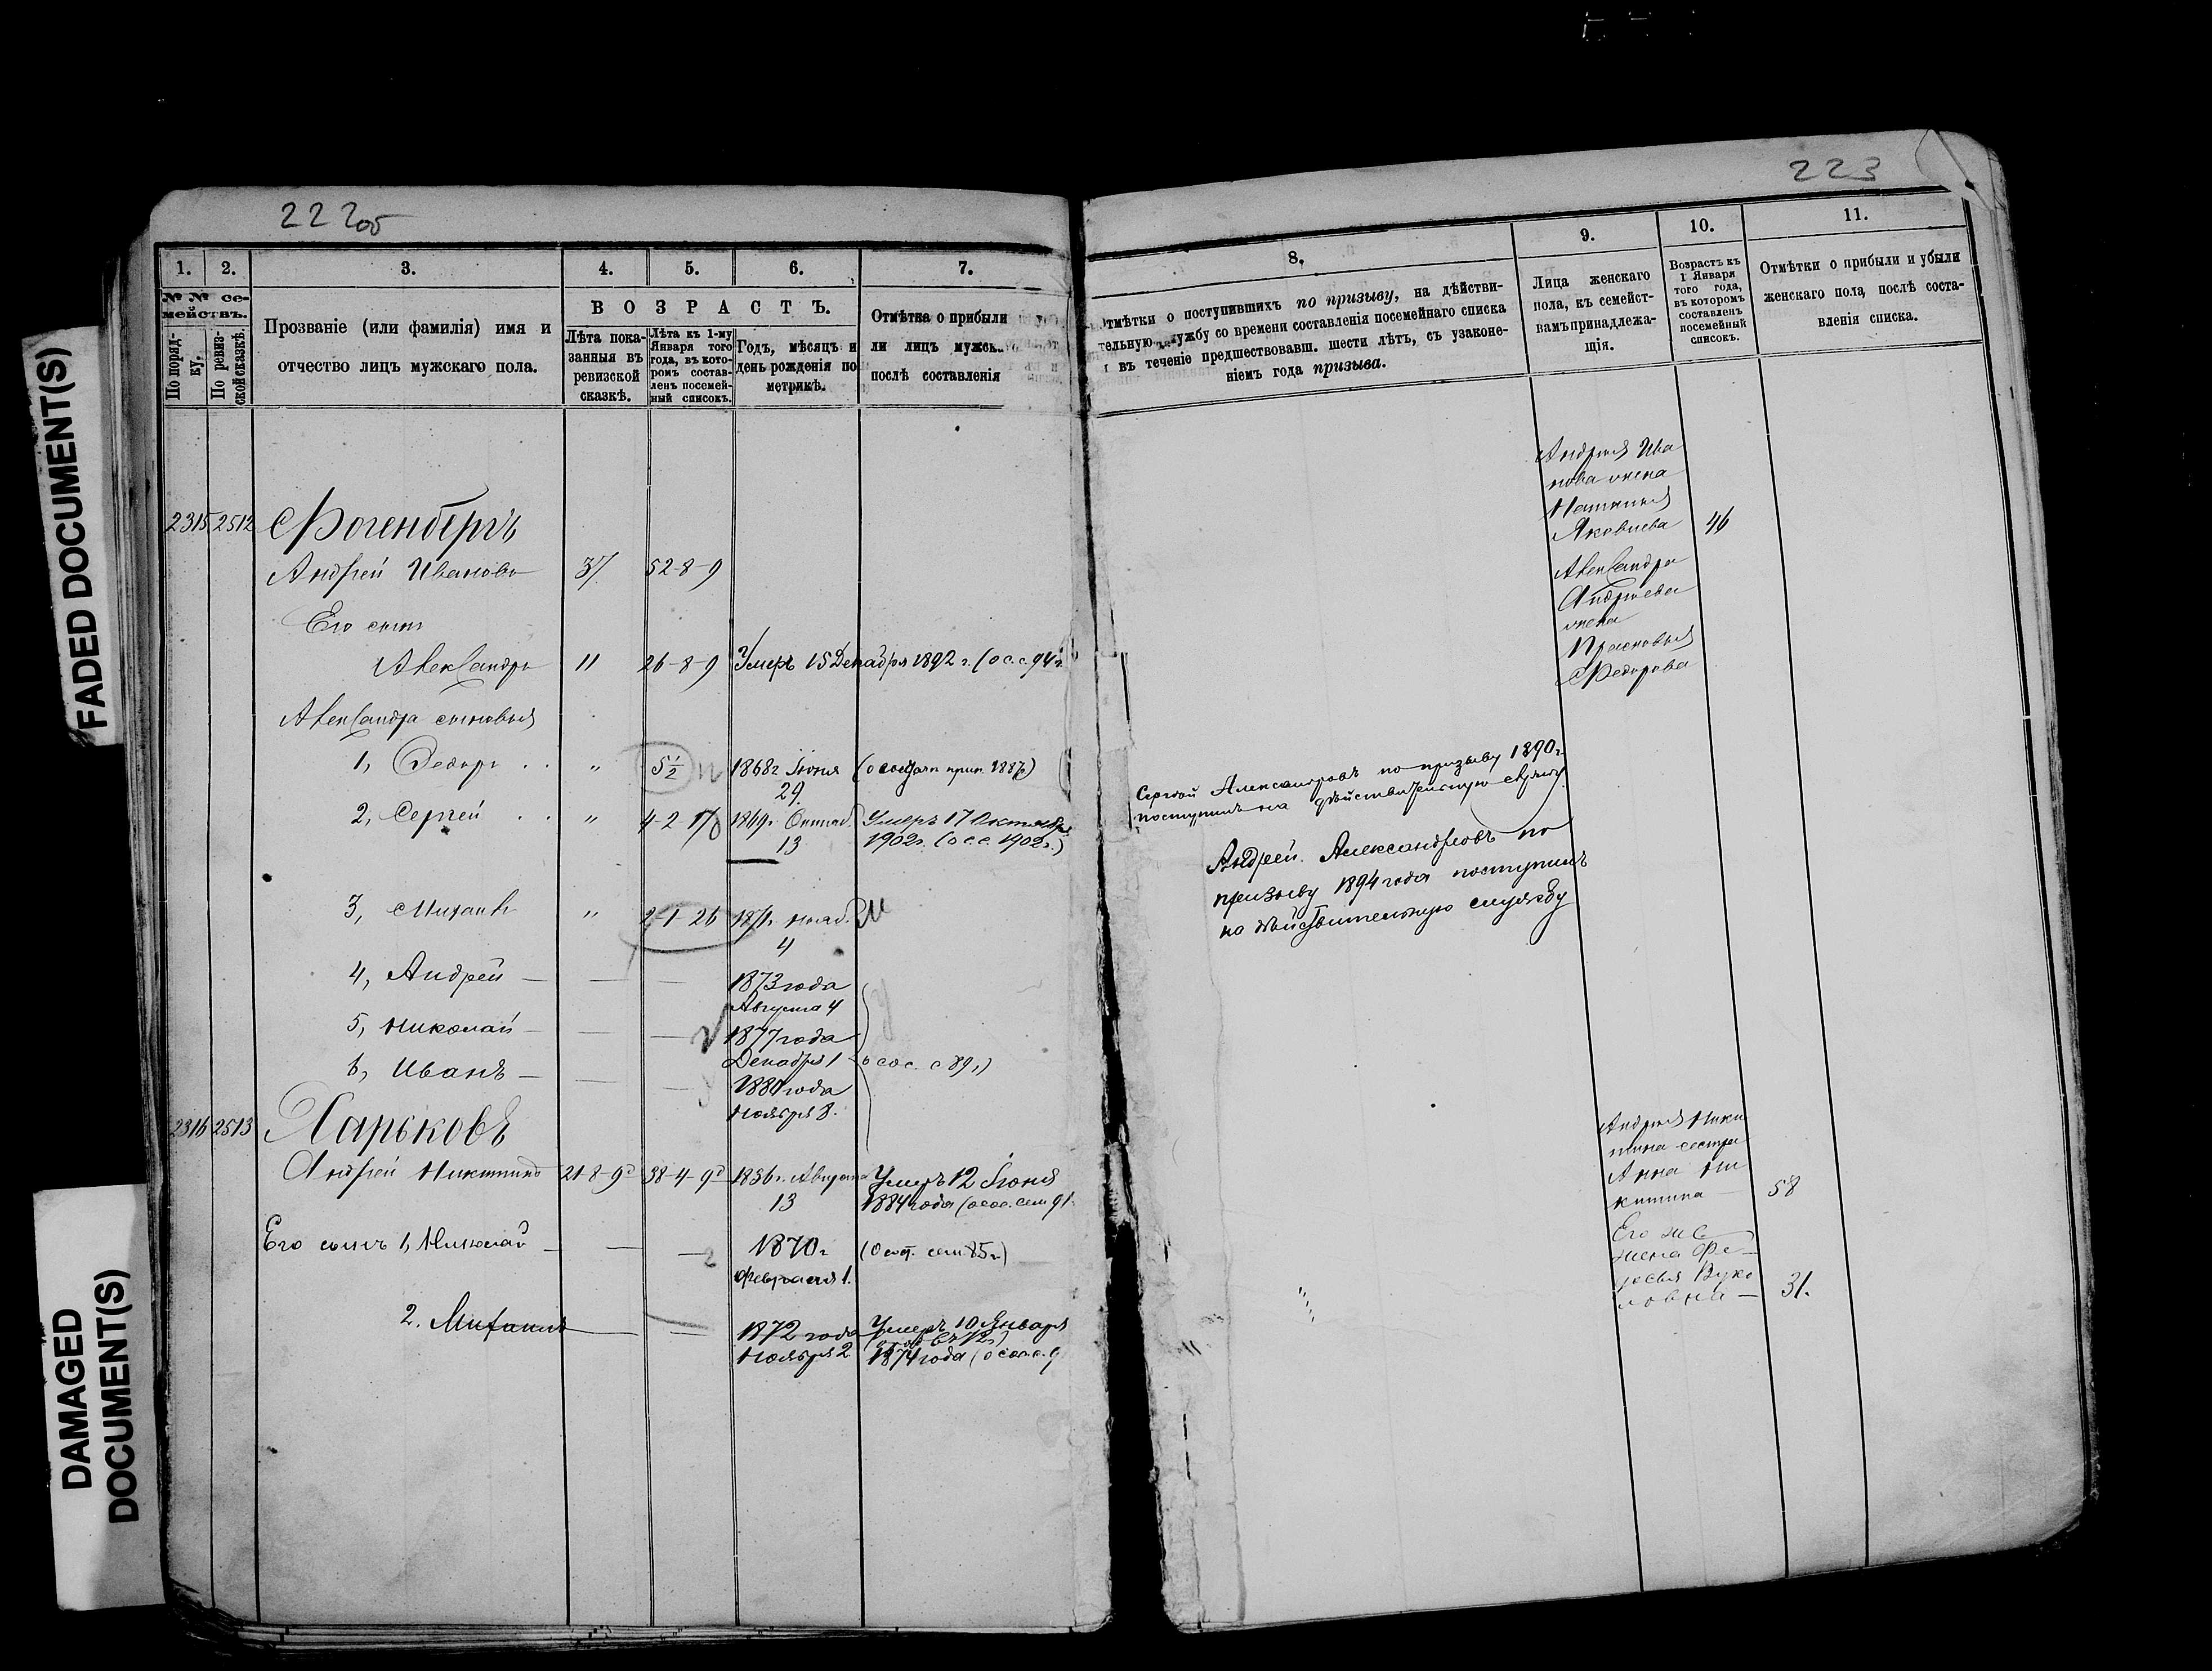 222об
223
FADED DOCUMENT(S)
DAMAGED
DOCUMENT(S)
1.
2.
3.
4.
5.
6.
7.
№№ се-
мействъ.
По поряд-
ку.
По ревиз-
ской сказкѣ.
Прозваніе (или фамилія) имя и
отчество лицъ мужскаго пола.
ВОЗРАСТЪ.
Лѣта пока-
занныя въ
ревизской
сказкѣ.
Лѣта къ 1-му
Января того
года, въ кото-
ромъ состав-
ленъ посемей-
ный списокъ.
Годъ, мѣсяцъ и
день рожденія по
метрикѣ.
Отмѣтка о прибыли
ли лицъ мужск
послѣ составленія
2315 2512 Фогенбергъ
Андрей Ивановъ 52-8-9
Его сынъ
Александръ 11 26-8-9 Умеръ 15 Декабря 1892 г. (о с. с. 94 г.
Александра сыновья
1, Федоръ . . " 5½ 1868г Іюня
29.
2, Сергей . . " 1869г. Октяб. Умеръ 17 Октября
13 1902г. (о с.с. 1902г.)
3, Михаилъ " 2-1-26
4
4, Андрей — — — 1873 года
Августа 4
5, Николай — — — 1877 года
Декабря 1
6, Иванъ — — — 1880 года
Ноября 8.
2316 2513 Харьковъ
Андрей Никитинъ 21-8-9 38-4-9 1836г. Августа Умеръ 12 Іюня
13 1884 года
Его сынъ 1, Николай — — — 1870г
Февраля 1.
2. Михаилъ — — 1872 года Умеръ 10 Января
Ноября 2. 1874 года
8.
9.
10.
11.
Отмѣтки о поступившихъ по призыву, на дѣйстви-
тельную службу со времени составленія посемейнаго списка
и въ теченіе предшествовавш. шести лѣтъ, съ узаконе-
ніемъ года призыва.
Лица женскаго
пола, къ семейст-
вамъ принадлежа-
щія.
Возрастъ къ
1 Января
того года,
въ которомъ
составленъ
посемейный
списокъ.
Отмѣтки о прибыли и убыли
женскаго пола, послѣ соста-
вленія списка.
Андрея Ива
нова жена
Наталья
Яковлева 46
Александра
Андреева
жена
Прасковья
Федорова
Сергей Александровъ по призыву 1890г.
поступилъ на дѣйствительную службу
Андрей Александровъ по
призыву 1894 года поступилъ
на дѣйствительную службу
Андрея Ники
тина сестра
Анна Ни
китина — 58
Его же
жена Фе—
досья Вуко
ловна — 31.